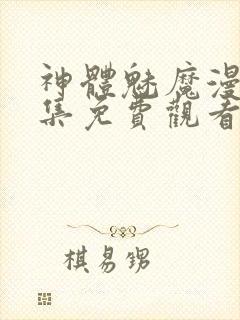 神體魅魔漫
集免費觀看
棋易甥